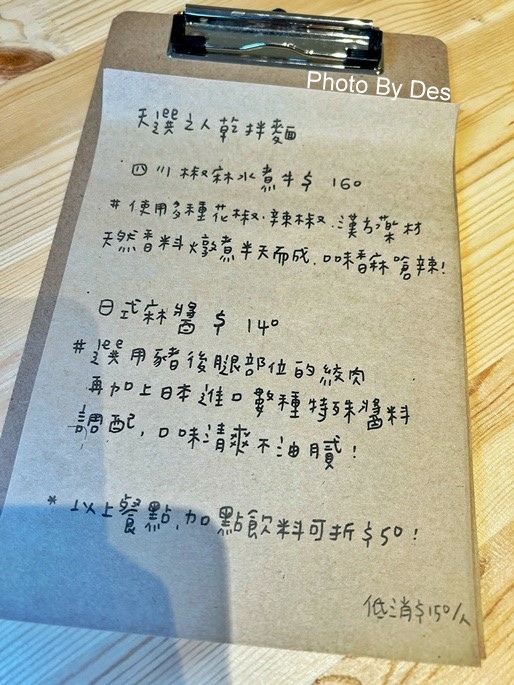 Photo By Des
天選之人乾拌麵
四川椒麻水煮牛$ 160
#使用多種花椒.辣椒.漢方藥材
天然香料燉煮半天而成.口味香麻嗆辣!
日式麻醬 $ 140
#選用豬後腿部位的絞肉
再加上日本進口數種特殊醬料
調配,口味清爽不油膩!
*以上餐點,加點飲料可折$50!
低消$150/人